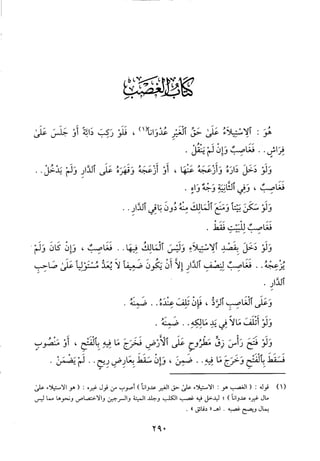 كتاب الغصب
هُوَ : ٱلِاسْتِيلَاءُ عَلَىٰ حَقِّ ٱلْغَيْرِ عُدْوَاناً(١) ، فَلَوْ رَكِبَ دَابَّةً أَوْ جَلَسَ عَلَىٰ
فِرَاشٍ .. فَغَاصِبٌ وَإِنْ لَمْ يَنْقُلْ .
وَلَوْ دَخَلَ دَارَهُ وَأَزْعَجَهُ عَنْهَا ، أَوْ أَزْعَجَهُ وَقَهَرَهُ عَلَى ٱلدَّارِ وَلَمْ يَدْخُلْ ..
فَغَاصِبٌ ، وَفِي ٱلثَّانِيَةِ وَجْهٌ وَاهٍ .
وَلَوْ سَكَنَ بَيْتاً وَمَنَعَ ٱلْمَالِكَ مِنْهُ دُونَ بَاقِي ٱلدَّارِ ..
فَغَاصِبٌ لِلْبَيْتِ فَقَطْ .
وَلَوْ دَخَلَ بِقَصْدِ ٱلِاسْتِيلَاءِ وَلَيْسَ ٱلْمَالِكُ فِيهَا .. فَغَاصِبٌ ، وَإِنْ كَانَ وَلَمْ
يُزْعِجْهُ .. فَغَاصِبٌ لِنِصْفِ ٱلدَّارِ إِلَّا أَنْ يَكُونَ ضَعِيفاً لَا يُعَدُّ مُسْتَوْلِياً عَلَىٰ صَاحِبِ
ٱلدَّارِ .
وَعَلَى ٱلْغَاصِبِ ٱلرَّدُّ ، فَإِنْ تَلِفَ عِنْدَهُ .. ضَمِنَهُ .
وَلَوْ أَتْلَفَ مَالاً فِي يَدِ مَالِكِهِ .. ضَمِنَهُ .
وَلَوْ فَتَحَ رَأْسَ زِقٍّ مَطْرُوحٍ عَلَى ٱلْأَرْضِ فَخَرَجَ مَا فِيهِ بِٱلْفَتْحِ ، أَوْ مَنْصُوبٍ
فَسَقَطَ بِٱلْفَتْحِ وَخَرَجَ مَا فِيهِ .. ضَمِنَ ، وَإِنْ سَقَطَ بِعَارِضِ رِيحٍ .. لَمْ يَضْمَنْ .
(١) قوله : ( الغصب هو : الاستيلاء على حق الغير عدواناً ) أصوب من قول غيره : ( هو الاستيلاء على
مال غيره عدواناً ) ؛ ليدخل فيه غصب الكلب وجلد الميتة والسرجين والاختصاص ونحوها مما ليس
بمال ويصح غصبه . اهـ « دقائق » .
٢٩٠